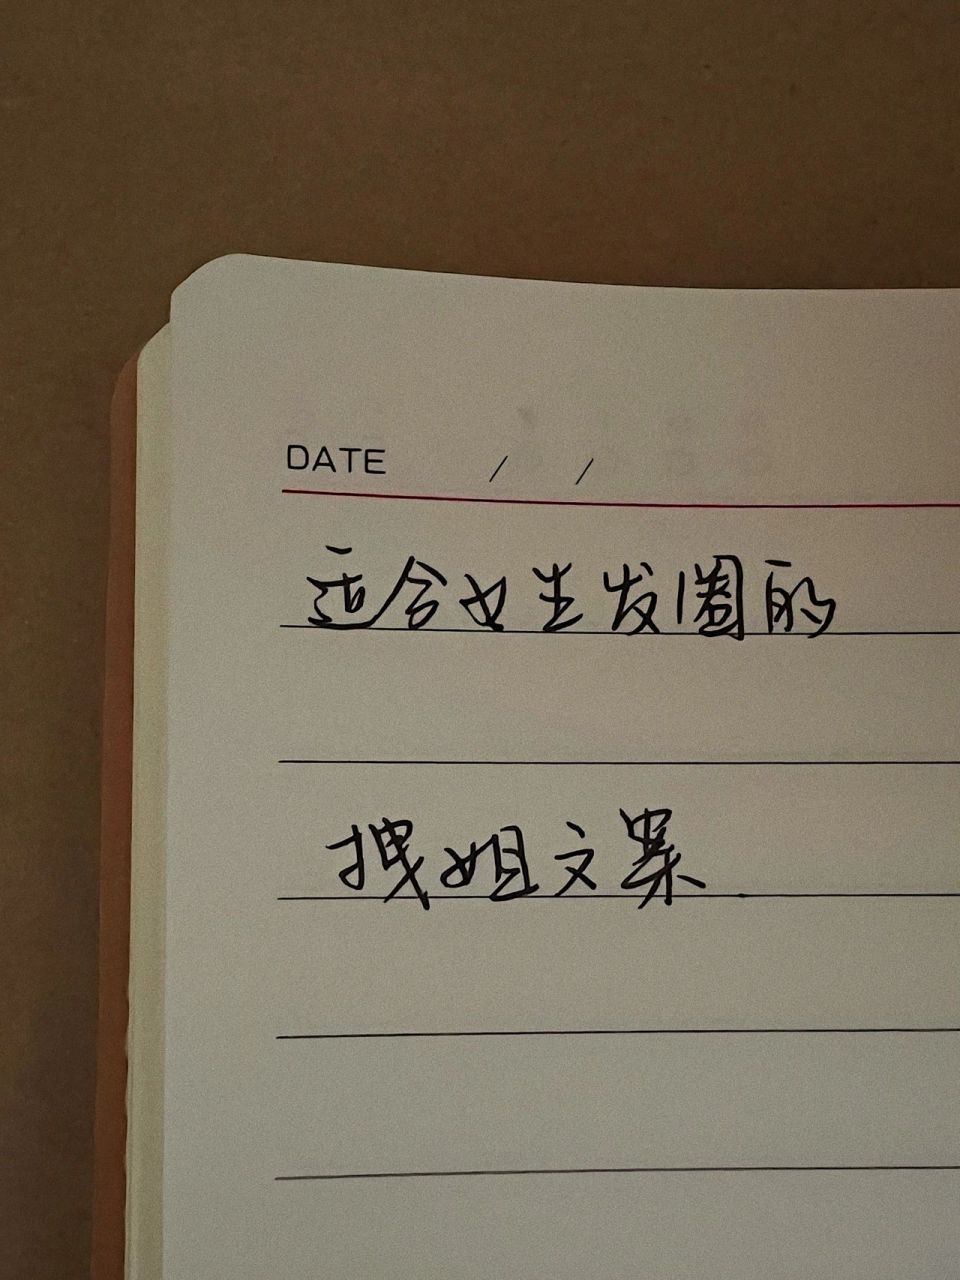 DATE / /
适合女生发圈的
拽姐文案